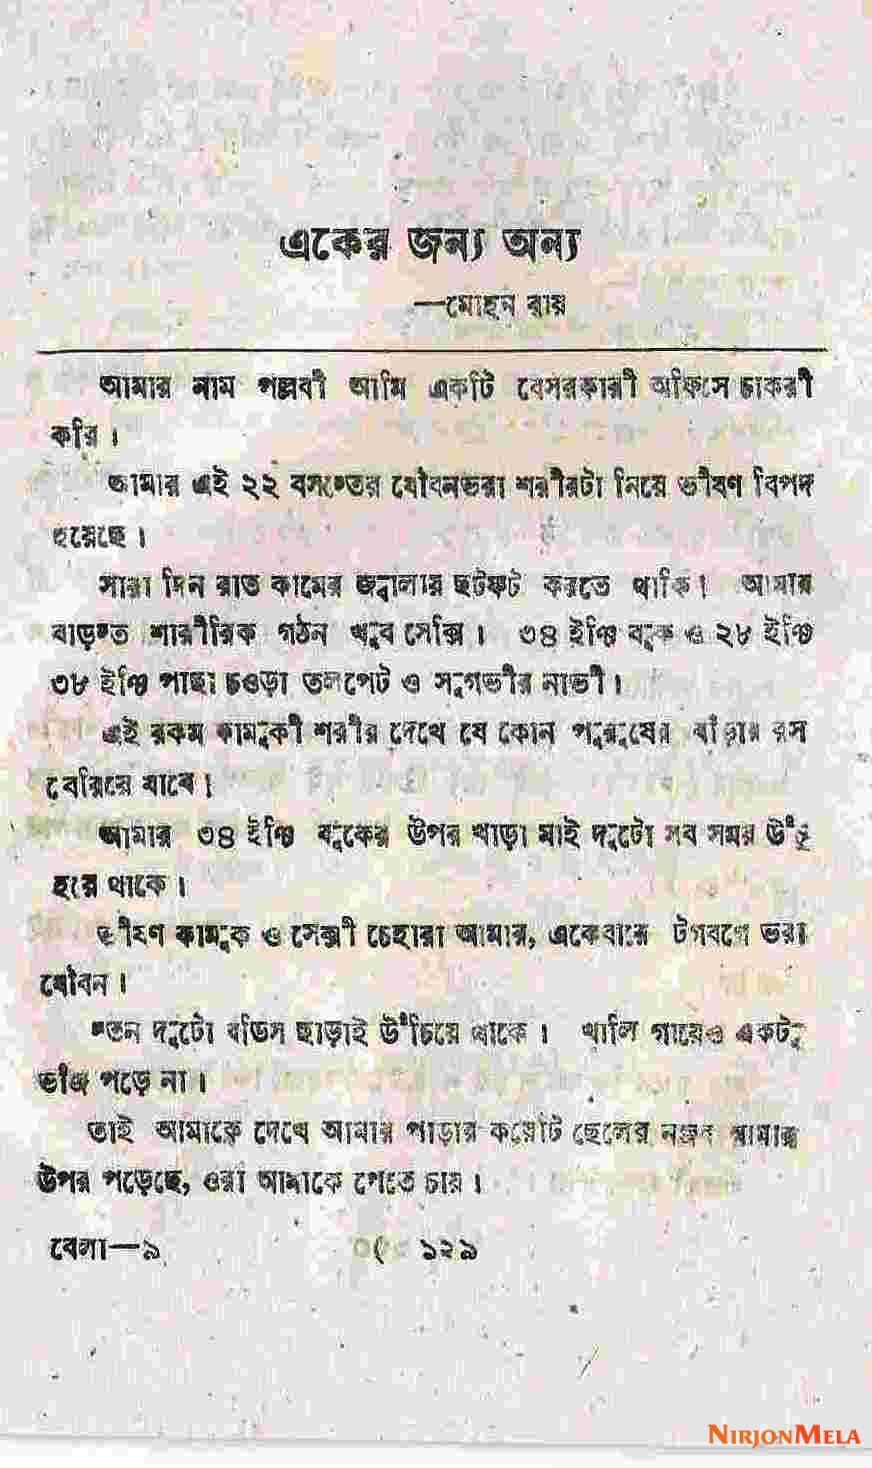 একের জন্য অন্য
—মোহন রায়
আমার নাম পল্লবী আমি একটি বেসরকারী অফিসে চাকরী
করি।
আমার এই ২২ বসন্তের যৌবনভরা শরীরটা নিয়ে ভীষণ বিপদ
হয়েছে।
সারা দিন রাত কামের জ্বালার ছটফট করতে থাকি! আমার
বাড়ন্ত শারীরিক গঠন খুব সেক্সি। ৩৪ ইঞ্চি বুক ও ২৮ ইঞ্চি
৩৮ ইঞ্চি পাছা চওড়া তলপেট ও সুগভীর নাভী।
এই রকম কামুকী শরীর দেখে যে কোন পুরুষের বাঁড়ার রস
বেরিয়ে যাবে!
আমার ৩৪ ইঞ্চি বুকের উপর খাড়া মাই দুটো সব সময় উঁচু
হয়ে থাকে।
ভীষণ কামুক ও সেক্সী চেহারা আমার, একেবারে টগবগে ভরা
যৌবন।
স্তন দুটো বডিস ছাড়াই উঁচিয়ে থাকে। খালি গায়েও একটু
ভাঁজ পড়ে না।
তাই আমাকে দেখে আমার পাড়ার কয়েটি ছেলের নজর আমার
উপর পড়েছে, ওরা আমাকে পেতে চায়।
বেলা—৯
১২৯
NIRJONMELA